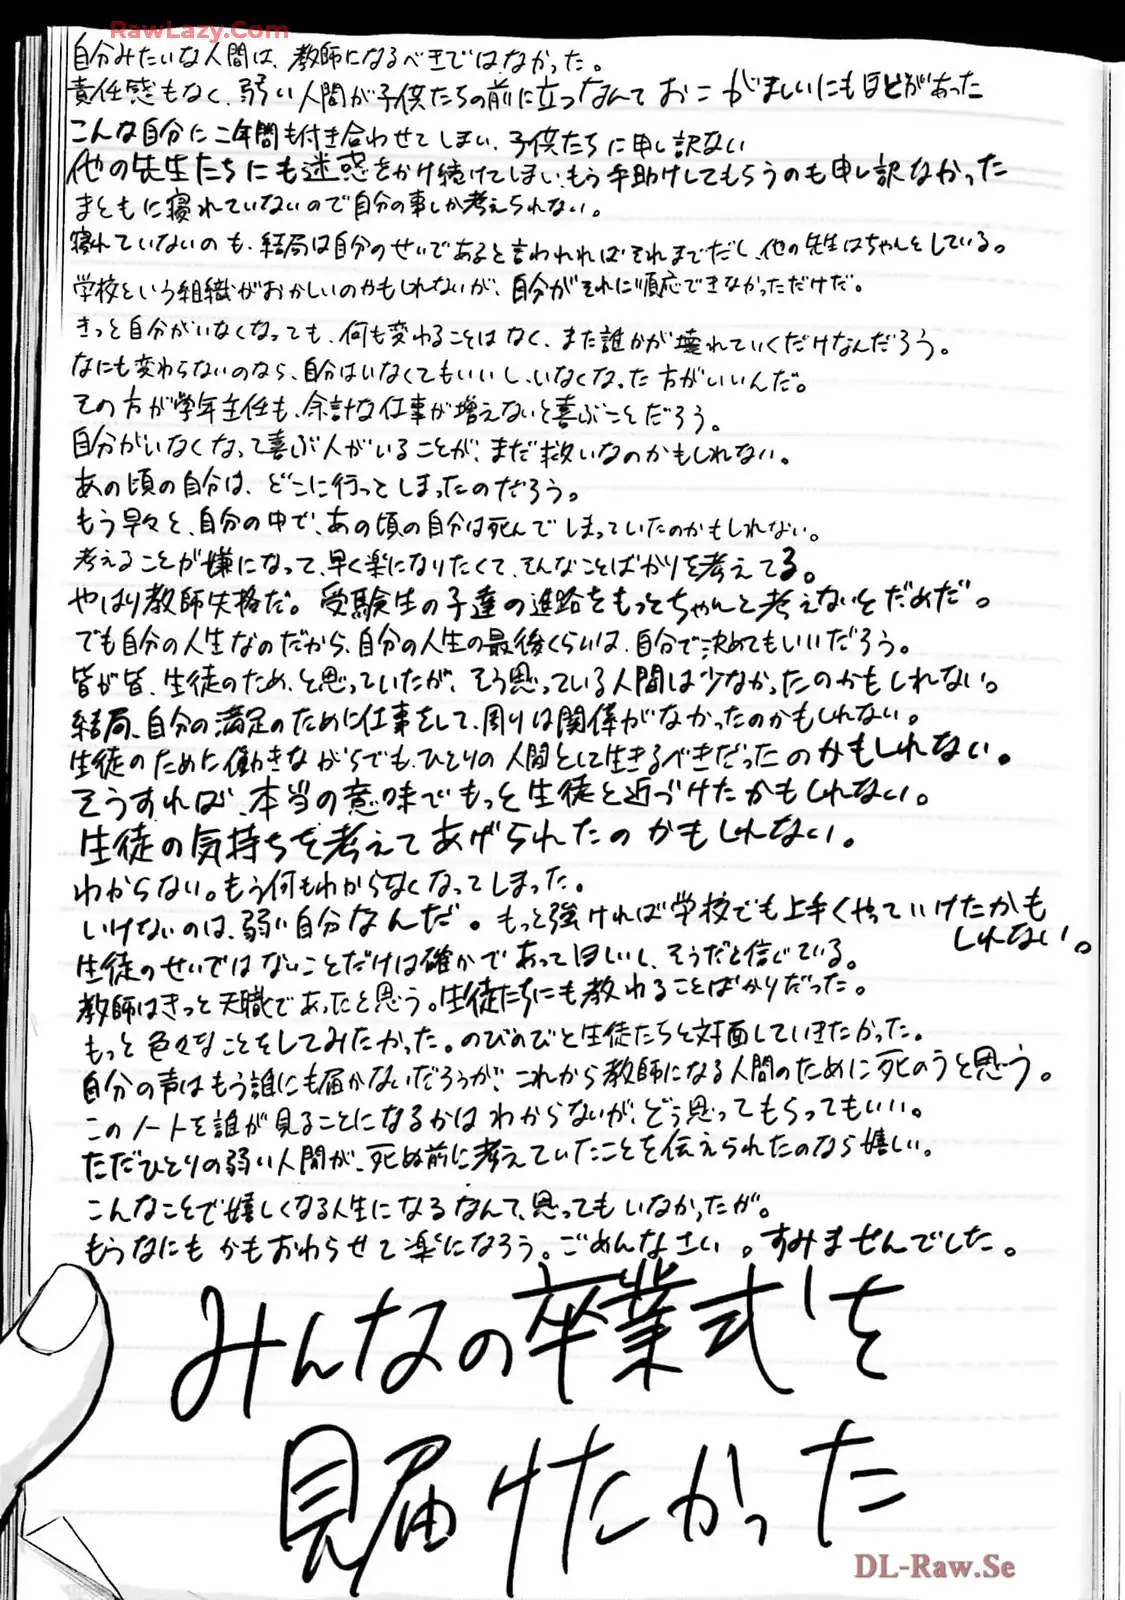 RawLazy.Com
自分みたいな人間は、教師になるべきではなかった。
責任感もなく、弱い人間が子供たちの前に立つなんておこがましいにもほどがあった
こんな自分に二年間も付き合わせてしまい、子供たちに申し訳ない
他の先生たちにも迷惑をかけ続けてしまい、もう手助けしてもらうのも申し訳なかった
まともに寝れていないので自分の事しか考えられない。
寝れていないのも、結局は自分のせいであると言われればそれまでだし、他の先生はちゃんとしている。
学校という組織がおかしいのかもしれないが、自分がそれに順応できなかっただけだ。
きっと自分がいなくなっても、何も変わることはなく、また誰かが壊れていくだけなんだろう。
なにも変わらないのなら、自分はいなくてもいいし、いなくなった方がいいんだ。
その方が学年主任も、余計な仕事が増えないと喜ぶことだろう。
自分がいなくなって喜ぶ人がいることが、まだ救いなのかもしれない。
あの頃の自分は、どこに行ってしまったのだろう。
もう早々と、自分の中で、あの頃の自分は死んでしまっていたのかもしれない。
考えることが嫌になって、早く楽になりたくて、そんなことばかりを考えてる。
やはり教師失格だ。受験生の子達の進路をもっとちゃんと考えないとだめだ。
でも自分の人生なのだから、自分の人生の最後くらいは、自分で決めてもいいだろう。
皆が皆、生徒のため、と思っていたが、そう思っている人間は少なかったのかもしれない。
結局、自分の満足のために仕事をして、周りは関係がなかったのかもしれない。
生徒のために働きながらでも、ひとりの人間として生きるべきだったのかもしれない。
そうすれば、本当の意味でもっと生徒と近づけたかもしれない。
生徒の気持ちを考えてあげられたのかもしれない。
わからない。もう何もわからなくなってしまった。
いけないのは、弱い自分なんだ。もっと強ければ学校でも上手くやっていけたかも
しれない。
生徒のせいではないことだけは確かであってほしいし、そうだと信じている。
教師はきっと天職であったと思う。生徒たちにも教わることばかりだった。
もっと色々なことをしてみたかった。のびのびと生徒たちと対面していきたかった。
自分の声はもう誰にも届かないだろうが、これから教師になる人間のために死のうと思う。
このノートを誰が見ることになるかはわからないが、どう思ってもらってもいい。
ただひとりの弱い人間が、死ぬ前に考えていたことを伝えられたのなら嬉しい。
こんなことで嬉しくなる人生になるなんて、思ってもいなかったが。
もうなにもかもおわらせて楽になろう。ごめんなさい。すみませんでした。
みんなの卒業式を
見届けたかった
DL-Raw.Se